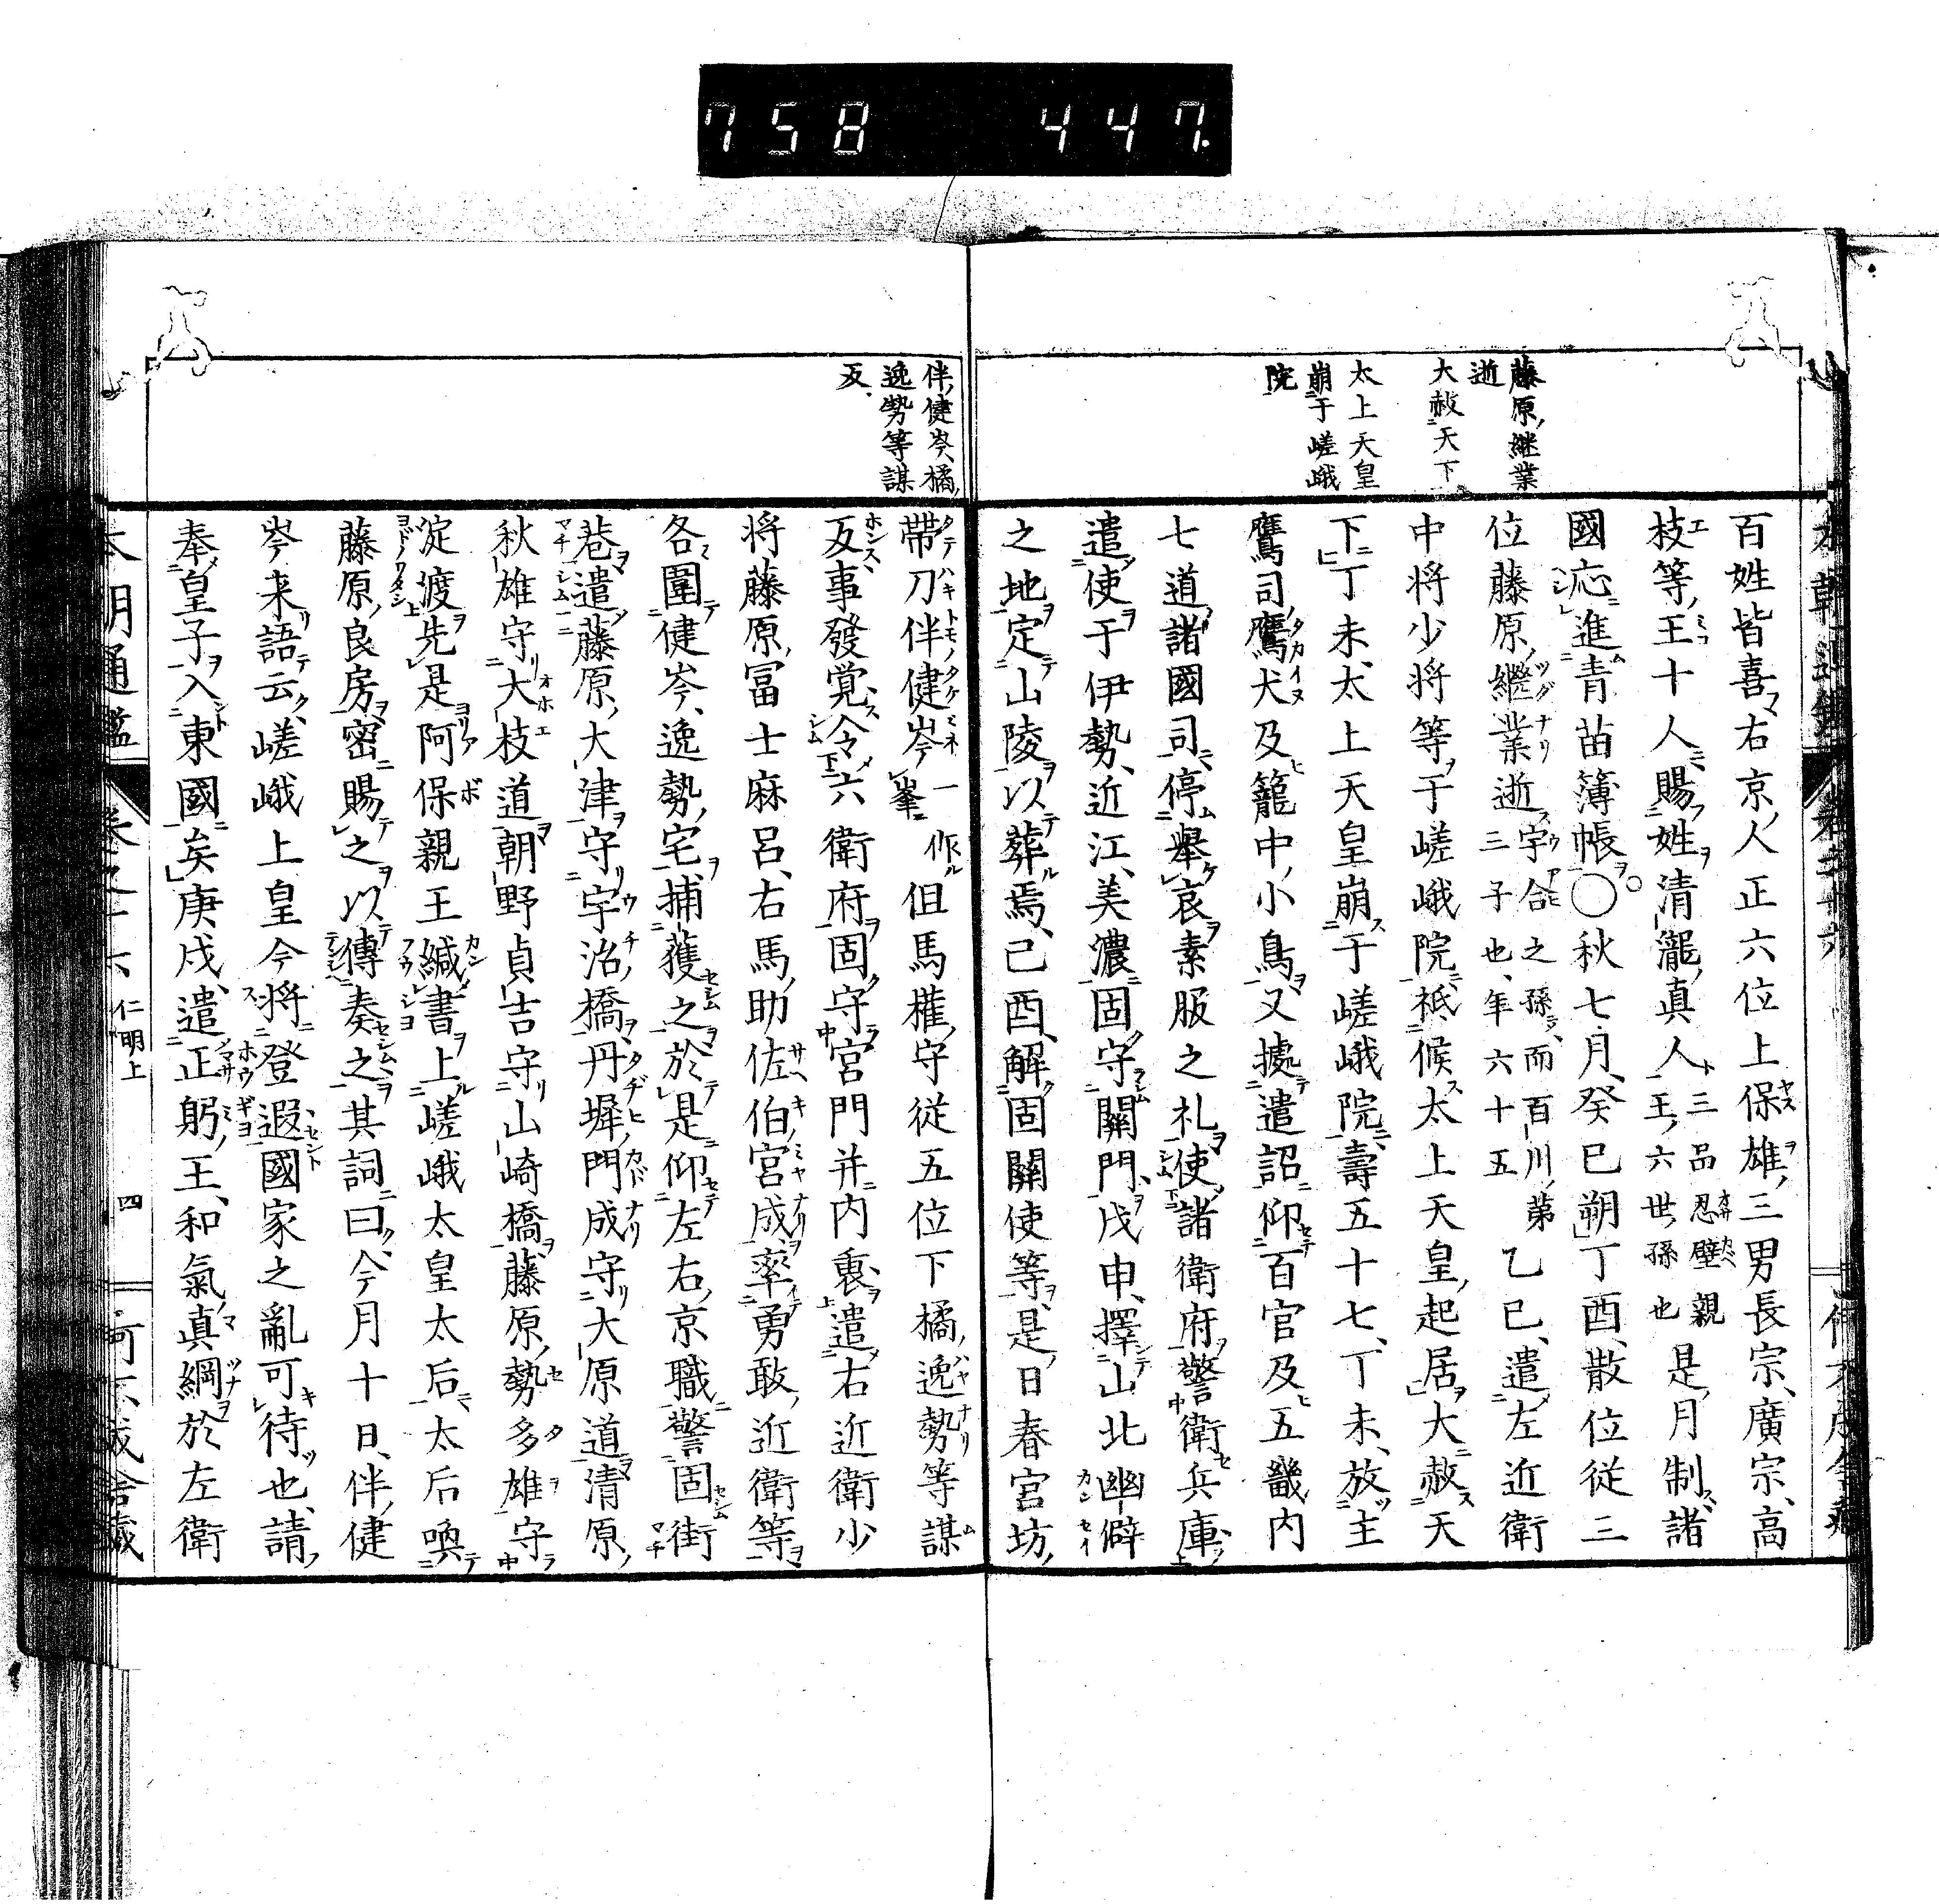 758 447.
藤原継業
逝
大赦天下
太上天皇
崩于嵯峨
院
百姓皆喜右京人正六位上保雄三男長宗廣宗高
枝等王十人賜姓清瀧真人三品忍壁親王六世孫也是月制諸
國応進青苗簿帳○秋七月癸巳朔丁酉散位從三
位藤原継業逝宇合之孫而百川第三子也年六十五乙巳遣左近衛
中将少将等于嵯峨院祗候太上天皇起居大赦天
下丁未太上天皇崩于嵯峨院壽五十七丁未放主
鷹司鷹犬及籠中小鳥又據遣詔仰百官及五畿内
七道諸國司停舉哀素服之礼使諸衛府警衛兵庫
遣使于伊勢近江美濃固守關門戊申擇山北幽僻
之地定山陵以葬焉己酉解固關使等是日春宮坊
伴健岑橘
逸勢等謀
反
帶刀伴健岑一作峯但馬權守從五位下橘逸勢等謀
反事發覚令六衛府固守宮門并内裏遣右近衛少
将藤原冨士麻呂右馬助佐伯宮成率勇敢近衛等
各圍健岑逸勢宅捕獲之於是仰左右京職警固街
巷遣藤原大津守宇治橋丹墀門成守大原道清原
秋雄守大枝道朝野貞吉守山崎橋藤原勢多雄守
淀渡先是阿保親王緘書上嵯峨太皇太后太后喚
藤原良房密賜之以傳奏之其詞曰今月十日伴健
岑来語云嵯峨上皇今将登遐國家之亂可待也請
奉皇子入東國矣庚戌遣正躬王和氣真綱於左衛
本朝通鑑 卷之十六 仁明上 四